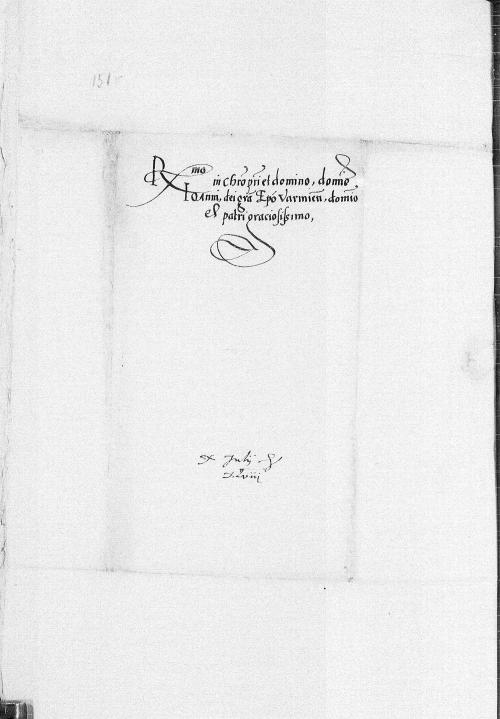 151r
Rmo in Chro pri et domino, domio
Ioanni, dei gra Epo Varmien, domio
et patri graciosissimo,
X Julij